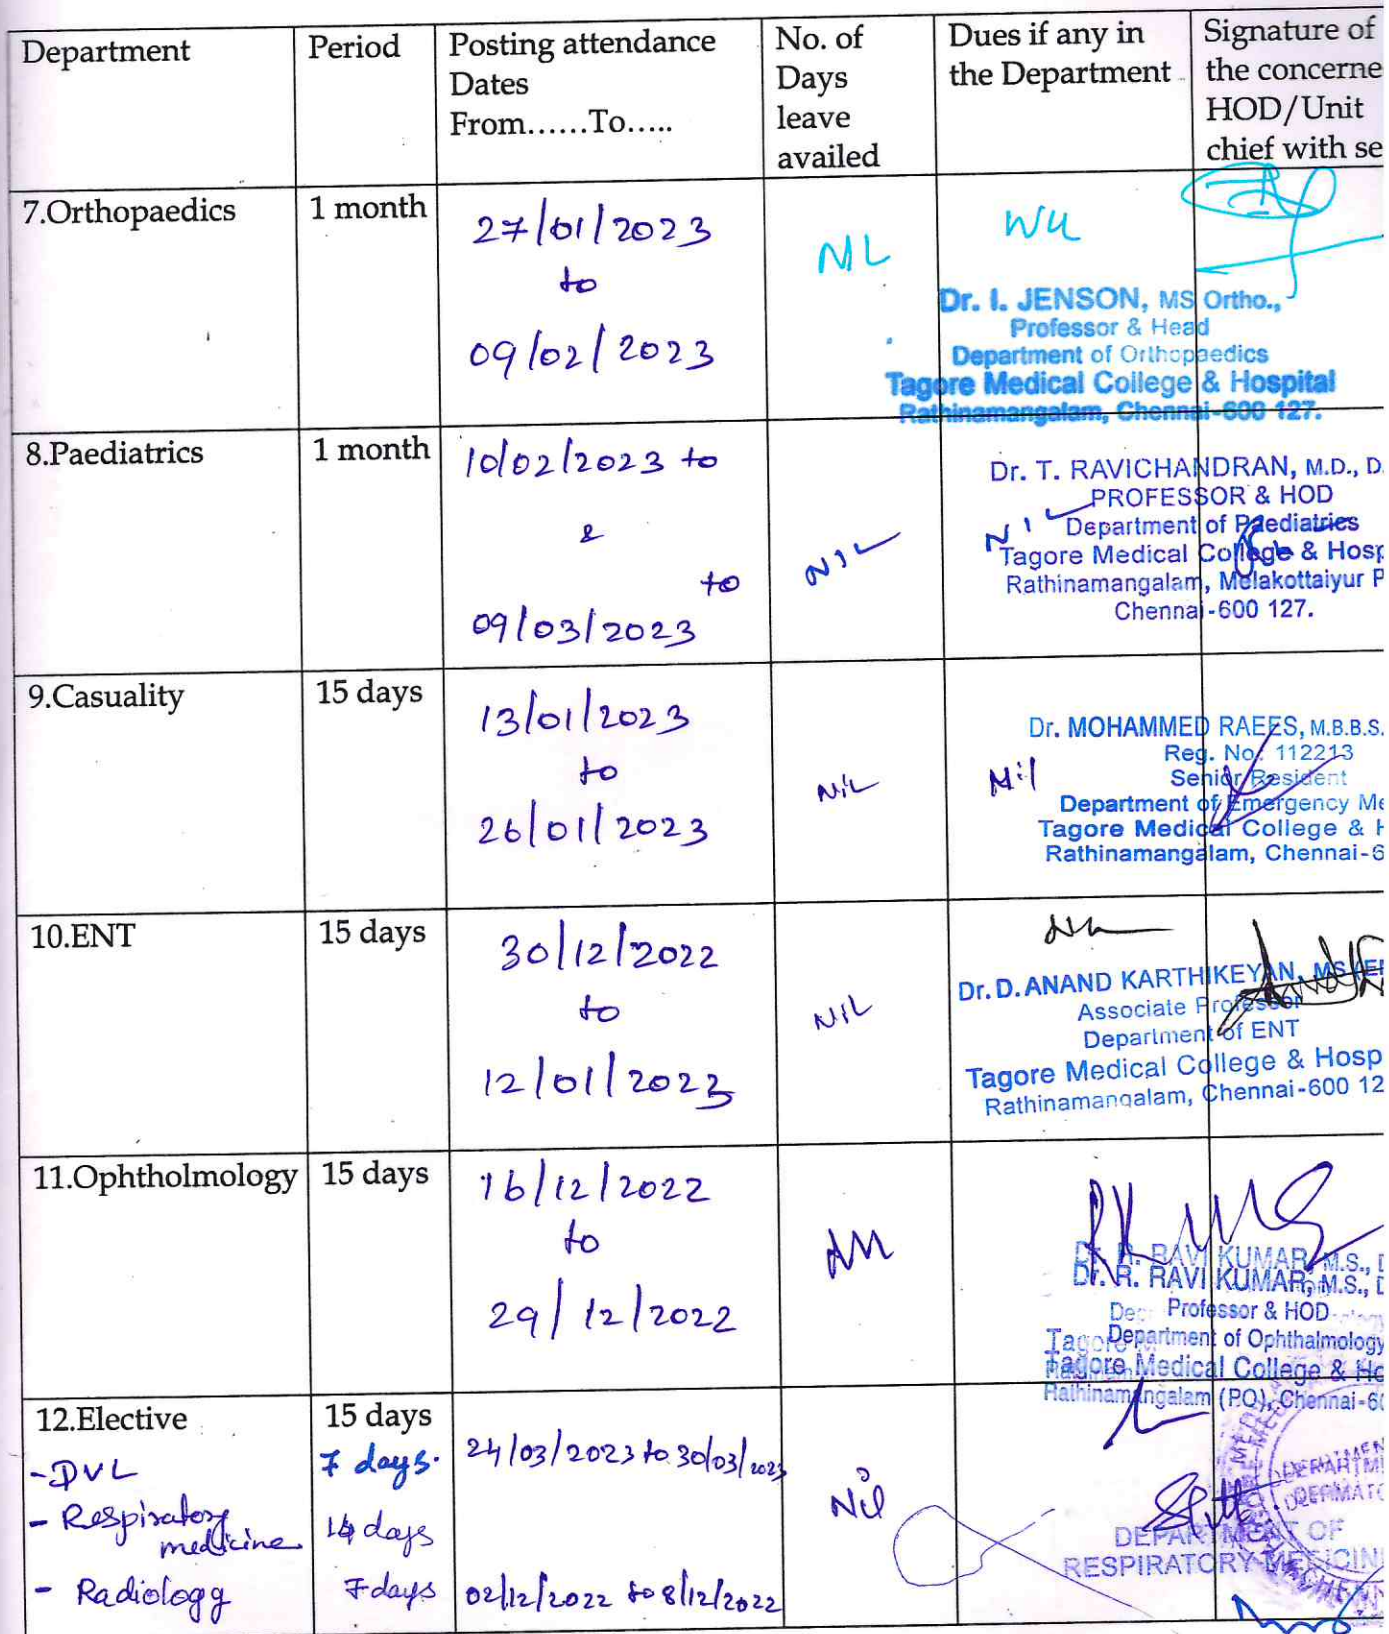 Department Period Posting attendance Dates From......To..... No. of Days leave availed Dues if any in the Department Signature of the concerne HOD/Unit chief with se
7.Orthopaedics 1 month 27/01/2023 to 09/02/2023 NIL
Dr. I. JENSON, MS Ortho.,
Professor & Head
Department of Orthopaedics
Tagore Medical College & Hospital
Rathinamangalam, Chennai-600 127.
8.Paediatrics 1 month 10/02/2023 to & to 09/03/2023 NIL NIL
Dr. T. RAVICHANDRAN, M.D., D.
PROFESSOR & HOD
Department of Paediatrics
Tagore Medical College & Hosp
Rathinamangalam, Melakottaiyur P
Chennai-600 127.
9.Casuality 15 days 13/01/2023 to 26/01/2023 NiL Nil
Dr. MOHAMMED RAEES, M.B.B.S.
Reg. No: 112213
Senior Resident
Department of Emergency Me
Tagore Medical College & H
Rathinamangalam, Chennai-6
10.ENT 15 days 30/12/2022 to 12/01/2023 NIL
Dr. D. ANAND KARTHIKEYAN, MS
Associate Professor
Department of ENT
Tagore Medical College & Hosp
Rathinamangalam, Chennai-600 12
11.Ophtholmology 15 days 16/12/2022 to 29/12/2022
Dr. R. RAVI KUMAR, M.S., D
Dr. R. RAVI KUMAR, M.S., D
Professor & HOD
Department of Ophthalmology
Tagore Medical College & Ho
Rathinamangalam (P.O), Chennai-60
12.Elective 15 days
-DVL 7 days. 24/03/2023 to 30/03/2023 Nil
- Respiratory medicine 14 days
DEPARTMENT OF
RESPIRATORY MEDICIN
- Radiology 7 days 02/12/2022 to 8/12/2022